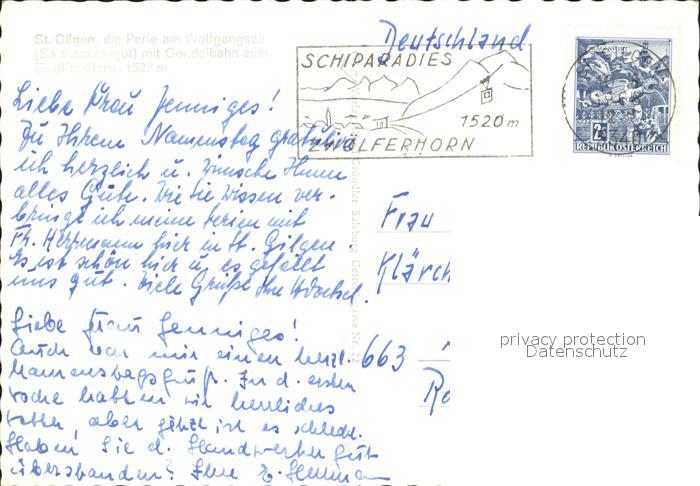 St. Gilgen, die Perle am Wolfgangsee
(Salzkammergut) mit Gondelbahn zum
Zwölfer-Horn, 1522 m
Deutschland
SCHIPARADIES
1520 m
ZWÖLFERHORN
REPUBLIK ÖSTERREICH
Liebe Frau Jenniges!
Zu Ihrem Namenstag gratuliere
ich herzlich u. wünsche Ihnen
alles Gute. Wie Sie wissen ver-
bringe ich meine Ferien mit
Fr. Herrmann hier in St. Gilgen.
Es ist schön hier u. es gefällt
uns gut. Viele Grüße Ihre
Liebe Frau Jenniges!
Auch von mir einen herzl.
Namenstagsgruß. In d. ersten
Woche hatten wir herrliches
Wetter, aber jetzt ist es schlecht.
Haben Sie d. Handwerker gut
überstanden? Ihre
Frau
Klärch
663
Ro
privacy protection
Datenschutz